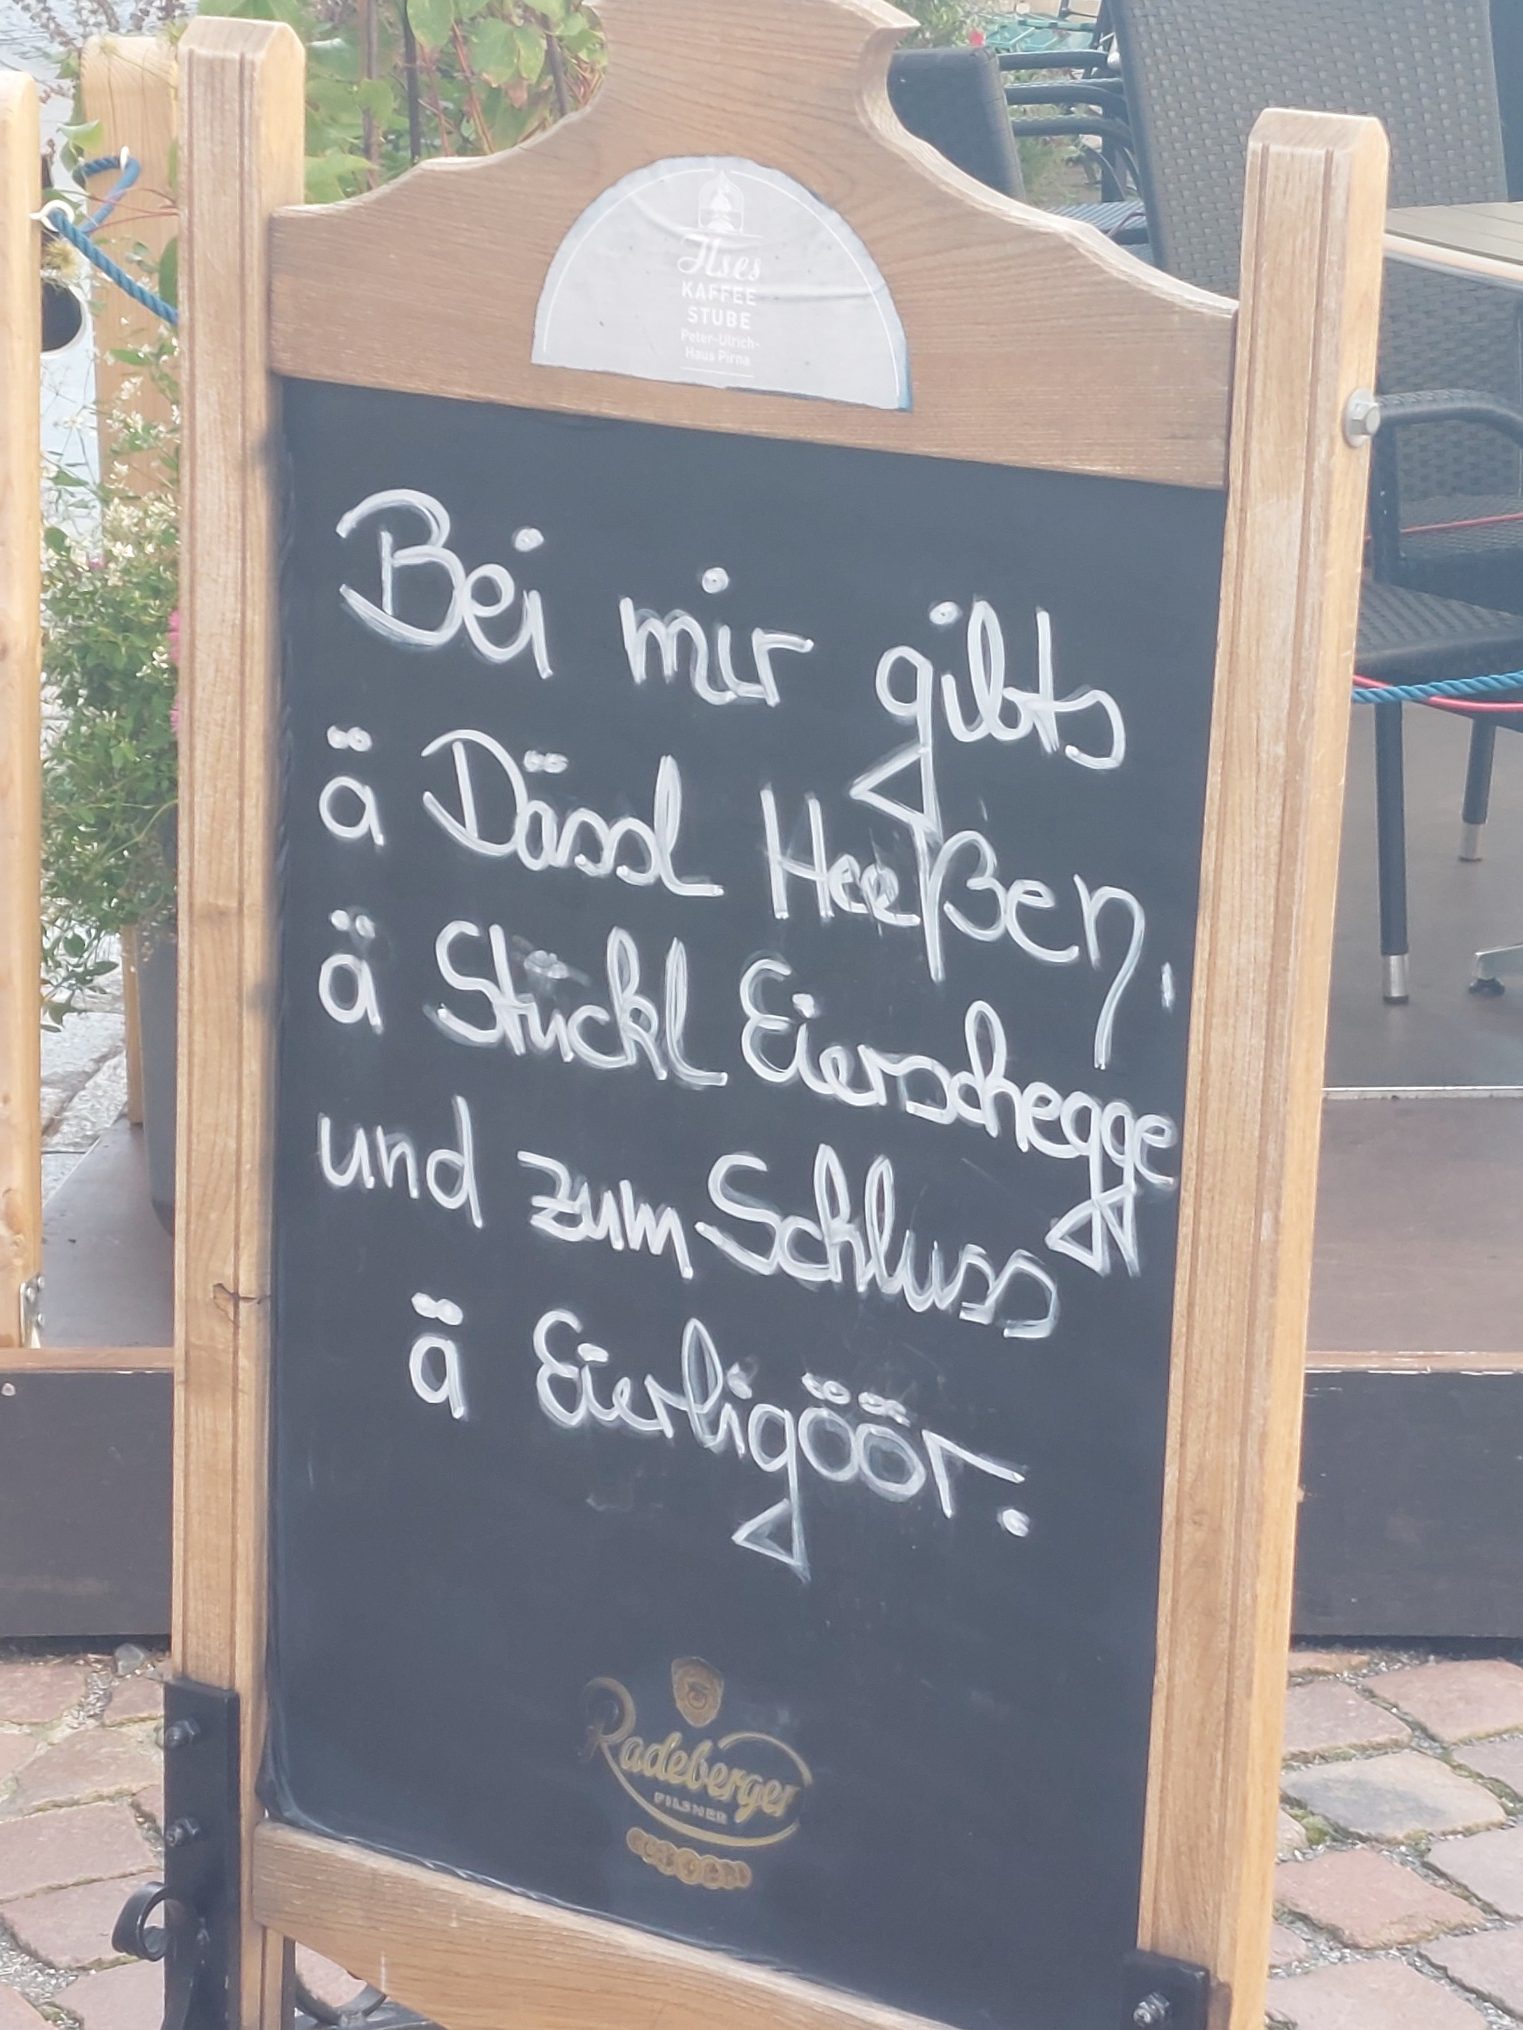 Ilses
KAFFEE
STUBE
Peter-Ulrich-
Haus Pirna
Bei mir gibts
ä Dässl Heeßen,
ä Stückl Eierschegge
und zum Schluss
ä Eierligöör.
Radeberger
PILSNER